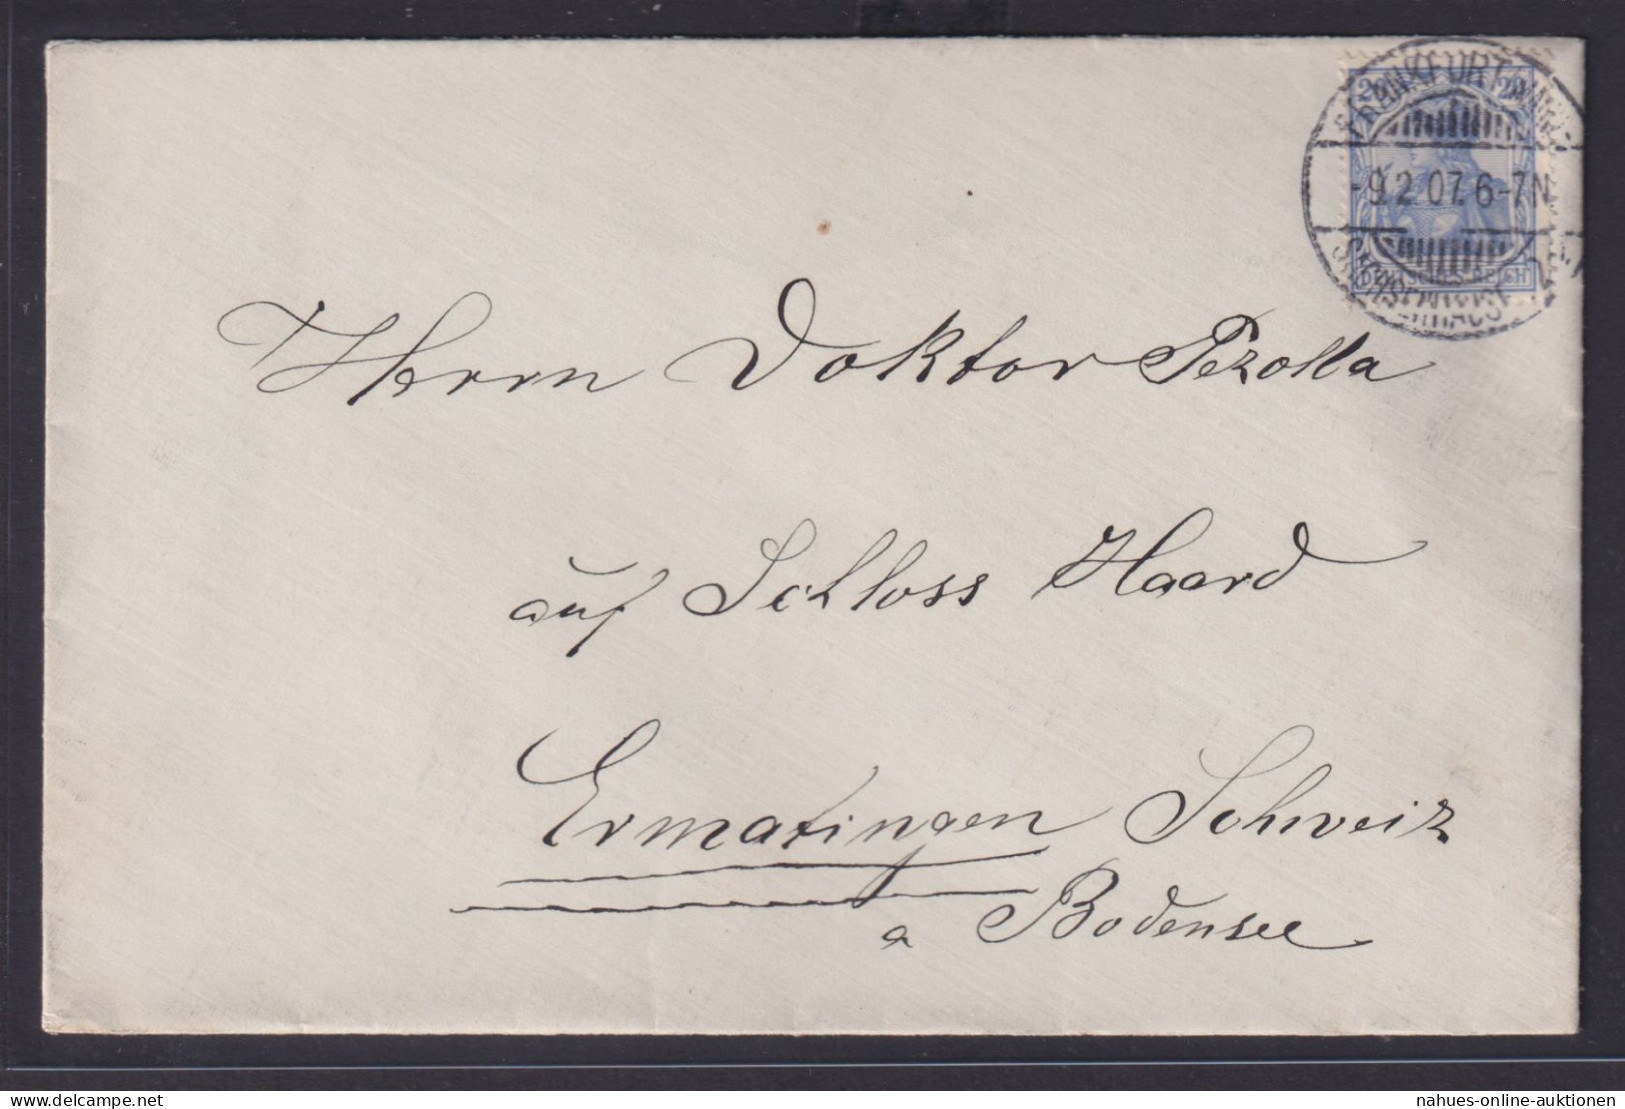 FRANKFURT (MAIN)
20 20
-9.2.07.6-7N
SACHSENHAUSEN
DEUTSCHES REICH
Herrn Doktor Pezolla
auf Schloss Haard
Ermatingen Schweiz
a Bodensee
delcampe.net
nahues-online-auktionen